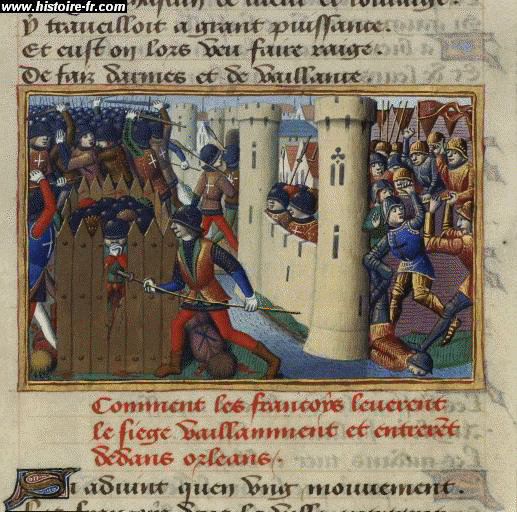 www.histoire-fr.com
y traveilloit a grant puissance.
Et eust on lors veu faire raige.
De faiz darmes et de vaillance
Comment les francoys leverent
le siege vaillamment et entrerent
dedans orleans.
Si advint quen ung mouvement.